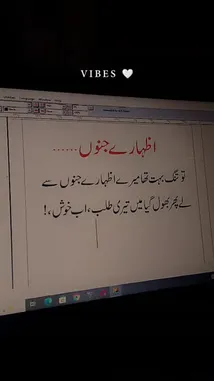 VIBES 🤍
اظہارے جنوں......
تو تنگ بہت تھا میرے اظہارے جنوں سے
لے پھر بھول گیا میں تیری طلب ،اب خوش ،!